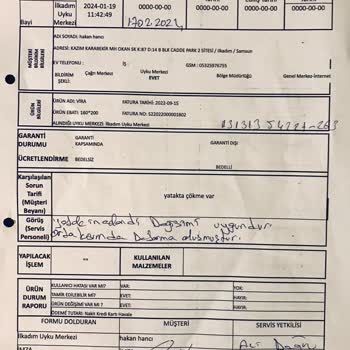 İlkadım
Uyku
Merkezi
2024-01-19
11:42:49
0000-00-00
0000-00-00
0000-00-00
Bayi
17.02.2024
MÜŞTERİ BİLDİRİM BİLGİLERİ
ADI SOYADI: hakan hancı
ADRESİ: KAZIM KARABEKİR MH OKAN SK K:87 D:14 B BLE CADDE PARK 2 SİTESİ / ilkadım / Samsun
EV TELEFONU : İŞ : GSM : 05325976755
BİLDİRİM ŞEKLİ: Çağrı Merkezi Uyku Merkezi EVET Bölge Müdürlüğü Genel Merkez-Internet
ÜRÜN BİLGİLERİ
ÜRÜN ADI: VİRA FATURA TARİHİ: 2022-09-15
ÜRÜN EBATI: 160*200 FATURA NO: S22022000001802
ALINDIĞI UYKU MERKEZİ: İlkadım Uyku Merkezi
GARANTİ DURUMU GARANTİ KAPSAMINDA GARANTİ DIŞI
ÜCRETLENDİRME BEDELSİZ BEDELLİ
Karşılaşılan Sorun Tarifi (Müşteri Beyanı)
yatakta çökme var
Görüş (Servis Personeli)
Değişimi uygundur.
oluşmuştur.
YAPILACAK İŞLEM
""
KULLANILAN MALZEMELER
ÜRÜN DURUM RAPORU
KULLANICI HATASI VAR MI? VAR: YOK:
TAMİR EDİLEBİLİR Mİ? EVET: HAYIR:
ÜRÜN DEĞİŞİMİ VAR MI ? EVET: HAYIR:
ÖDEME TUTARI: Nakit Kredi Kartı Havale
FORMU DOLDURAN MÜŞTERİ SERVİS YETKİLİSİ
İlkadım Uyku Merkezi hakan hancı